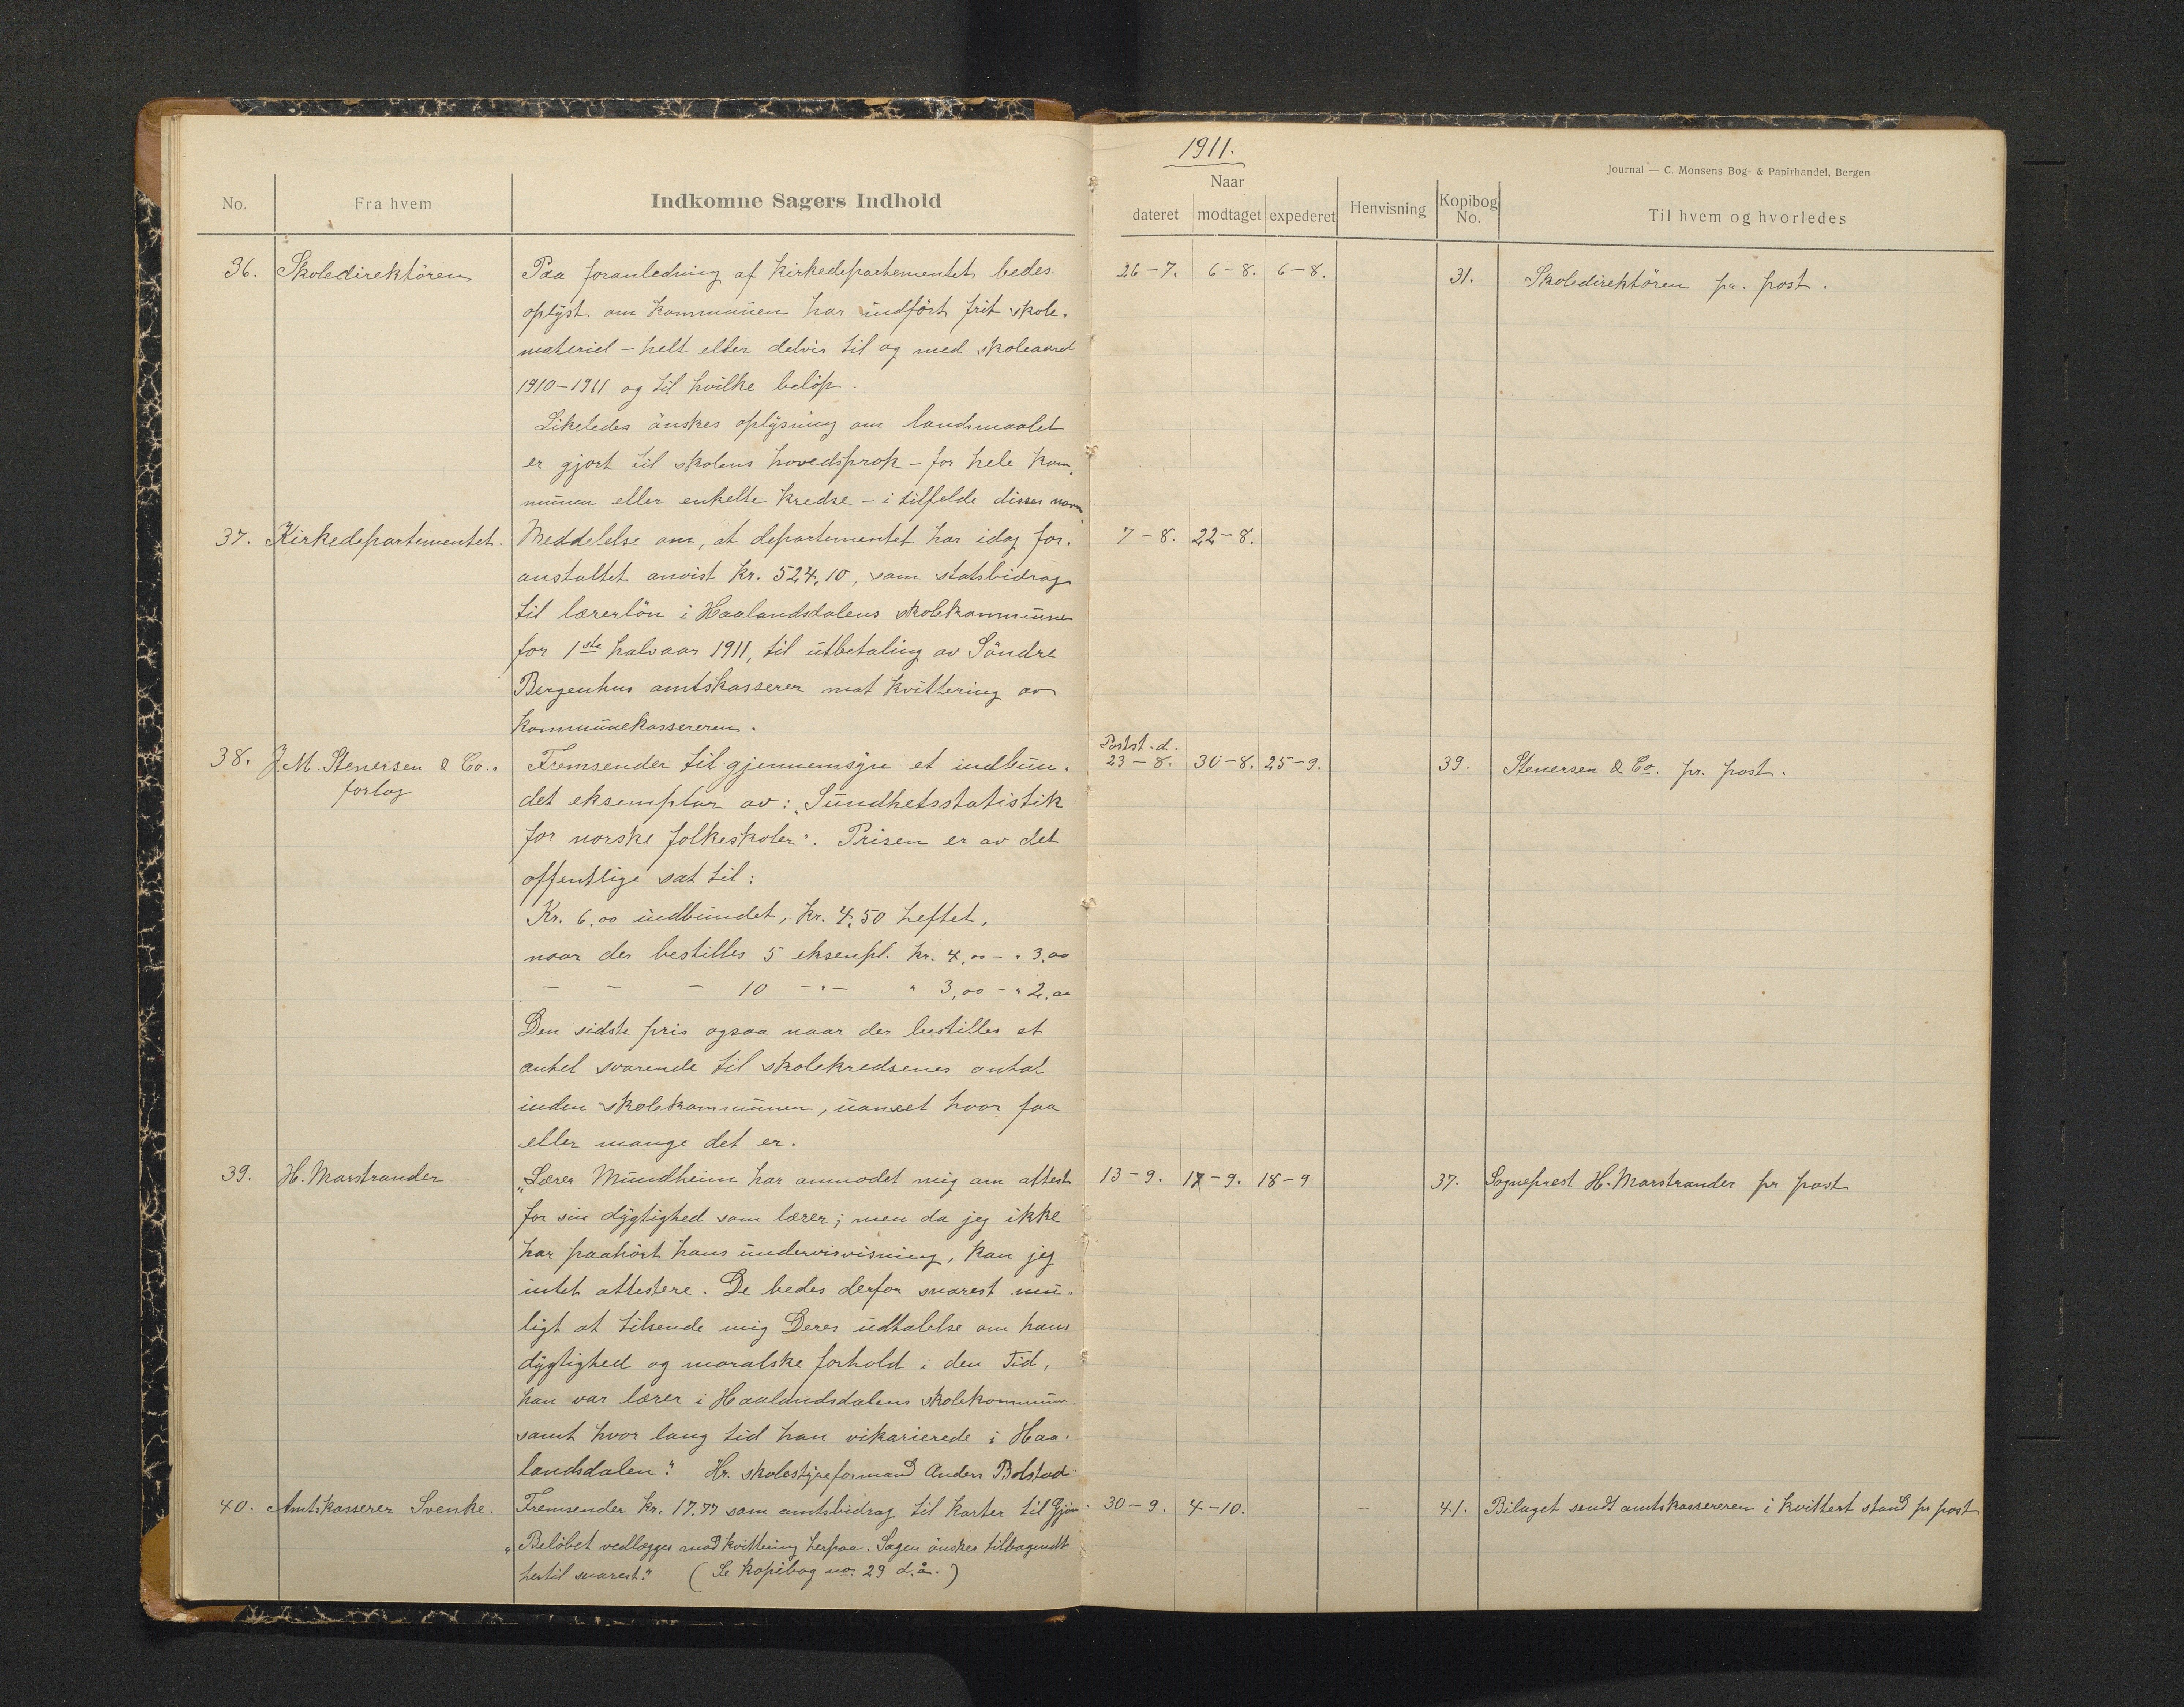 1911.
Journal — C. Monsens Bog- & Papirhandel, Bergen
No. Fra hvem Indkomne Sagers Indhold Naar dateret modtaget expederet Henvisning Kopibog No. Til hvem og hvorledes
36. Skoledirektören Paa foranledning af Kirkedepartementet bedes 26-7. 6-8. 6-8. 31. Skoledirektören pr. post.
oplyst om kommunen har indfört frit skole-
materiel - helt eller delvis til og med skoleaaret
1910-1911 og til hvilke belöp.
Likeledes önskes oplysning om landsmaalet
er gjort til skolens hovedsprok - for hele kom-
munen eller enkelte kredse - i tilfelde disses navn.
37. Kirkedepartementet. Meddelelse om, at departementet har idag for- 7-8. 22-8.
anstaltet anvist kr. 524,10, som statsbidrag
til lærerlön i Haalandsdalens skolekommune
for 1ste halvaar 1911, til utbetaling av Söndre
Bergenhus amtskasserer mot kvittering av
kommunekassereren.
38. J. M. Stenersen & Co.s Fremsender til gjennemsyn et indbun- Postst. d. 23-8. 30-8. 25-9. 39. Stenersen & Co. pr. post.
forlag det eksemplar av: "Sundhetsstatistik
for norske folkeskoler". Prisen er av det
offentlige sat til:
Kr. 6,00 indbundet, kr. 4,50 heftet,
naar der bestilles 5 eksempl. kr. 4,00 - " 3,00
- - - 10 -"- " 3,00 - " 2,00
Den sidste pris ogsaa naar der bestilles et
antal svarende til skolekredsenes antal
inden skolekommunen, uanset hvor faa
eller mange det er.
39. H. Marstrander "Lærer Mundheim har anmodet mig om attest 13-9. 17-9. 18-9 37. Sogneprest H. Marstrander pr post
for sin dygtighed som lærer; men da jeg ikke
har paahört hans undervisvisning, kan jeg
intet attestere. De bedes derfor snarest mu-
ligt at tilsende mig Deres udtalelse om hans
dygtighed og moralske forhold i den Tid,
han var lærer i Haalandsdalens skolekommune
samt hvor lang tid han vikarierede i Haa-
landsdalen." Hr. skolestyreformand Anders Bolstad.
40. Amtskasserer Svenke. Fremsender kr. 17.77 som amtsbidrag til karter til 30-9. 4-10. - 41. Bilaget sendt amtskassereren i kvittert stand pr post
"Belöbet vedlægges mod kvittering herpaa. Sagen önskes tilbagesendt
hertil snarest." (Se kopibog no. 29 d.å.)